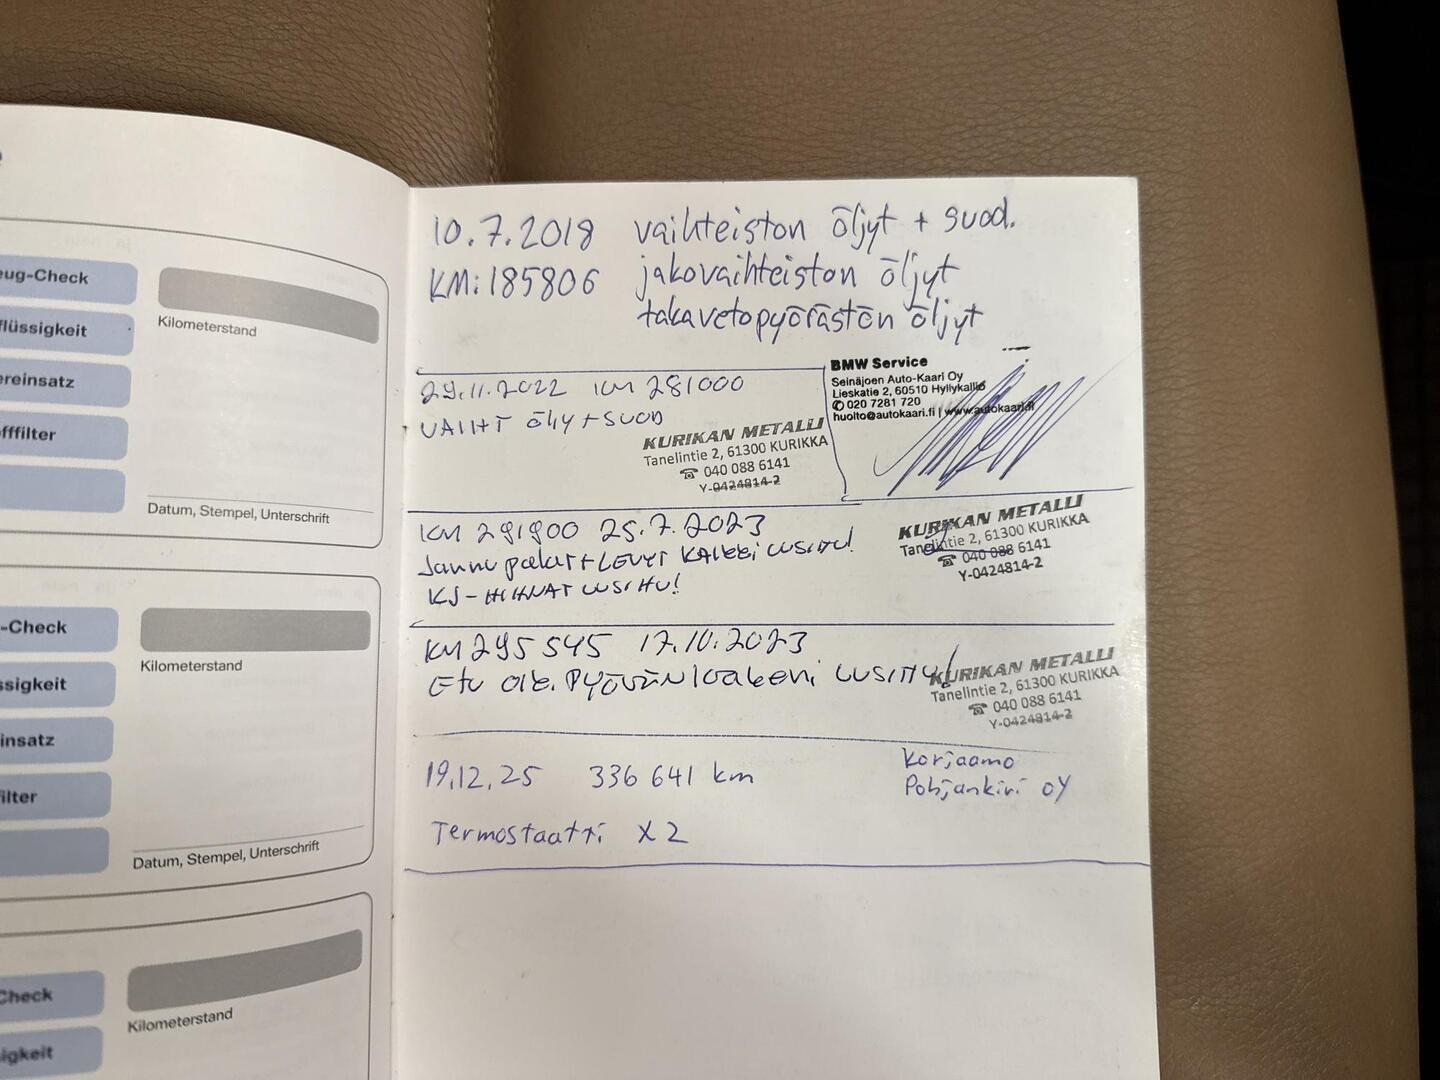 eug-Check
lüssigkeit
ereinsatz
offfilter
Kilometerstand
Datum, Stempel, Unterschrift
-Check
ssigkeit
insatz
ilter
Kilometerstand
Datum, Stempel, Unterschrift
Check
igkeit
Kilometerstand
10.7.2018 vaihteiston öljyt + suod.
KM:185806 jakovaihteiston öljyt
takavetopyörästön öljyt
BMW Service
Seinäjoen Auto-Kaari Oy
Lieskatie 2, 60510 Hyllykallio
020 7281 720
huolto@autokaari.fi | www.autokaari.fi
29.11.2022 KM 281000
VAIHT öljy + SUOD
KURIKAN METALLI
Tanelintie 2, 61300 KURIKKA
040 088 6141
Y-0424814-2
KM 291900 25.7.2023
Jarrupalat + LEVYT KAIKKI UUSITTU!
KJ-HIHNAT UUSITTU!
KURIKAN METALLI
Tanelintie 2, 61300 KURIKKA
040 088 6141
Y-0424814-2
KM 295545 17.10.2023
Etu oik. PYÖRÄN laakeri UUSITTU!
KURIKAN METALLI
Tanelintie 2, 61300 KURIKKA
040 088 6141
Y-0424814-2
19.12.25 336 641 km
Korjaamo
Pohjankivi OY
Termostaatti X 2